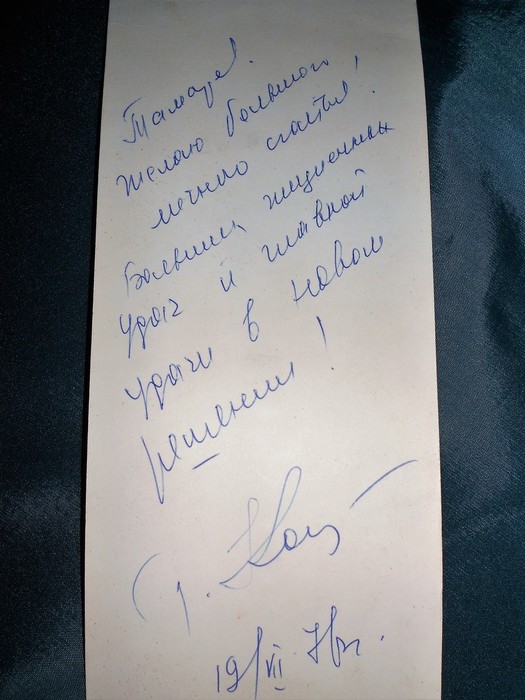 Тамаре!
Желаю большого,
личного счастья!
Больших жизненных
удач и главной
удачи в новом
решении!
19/VII